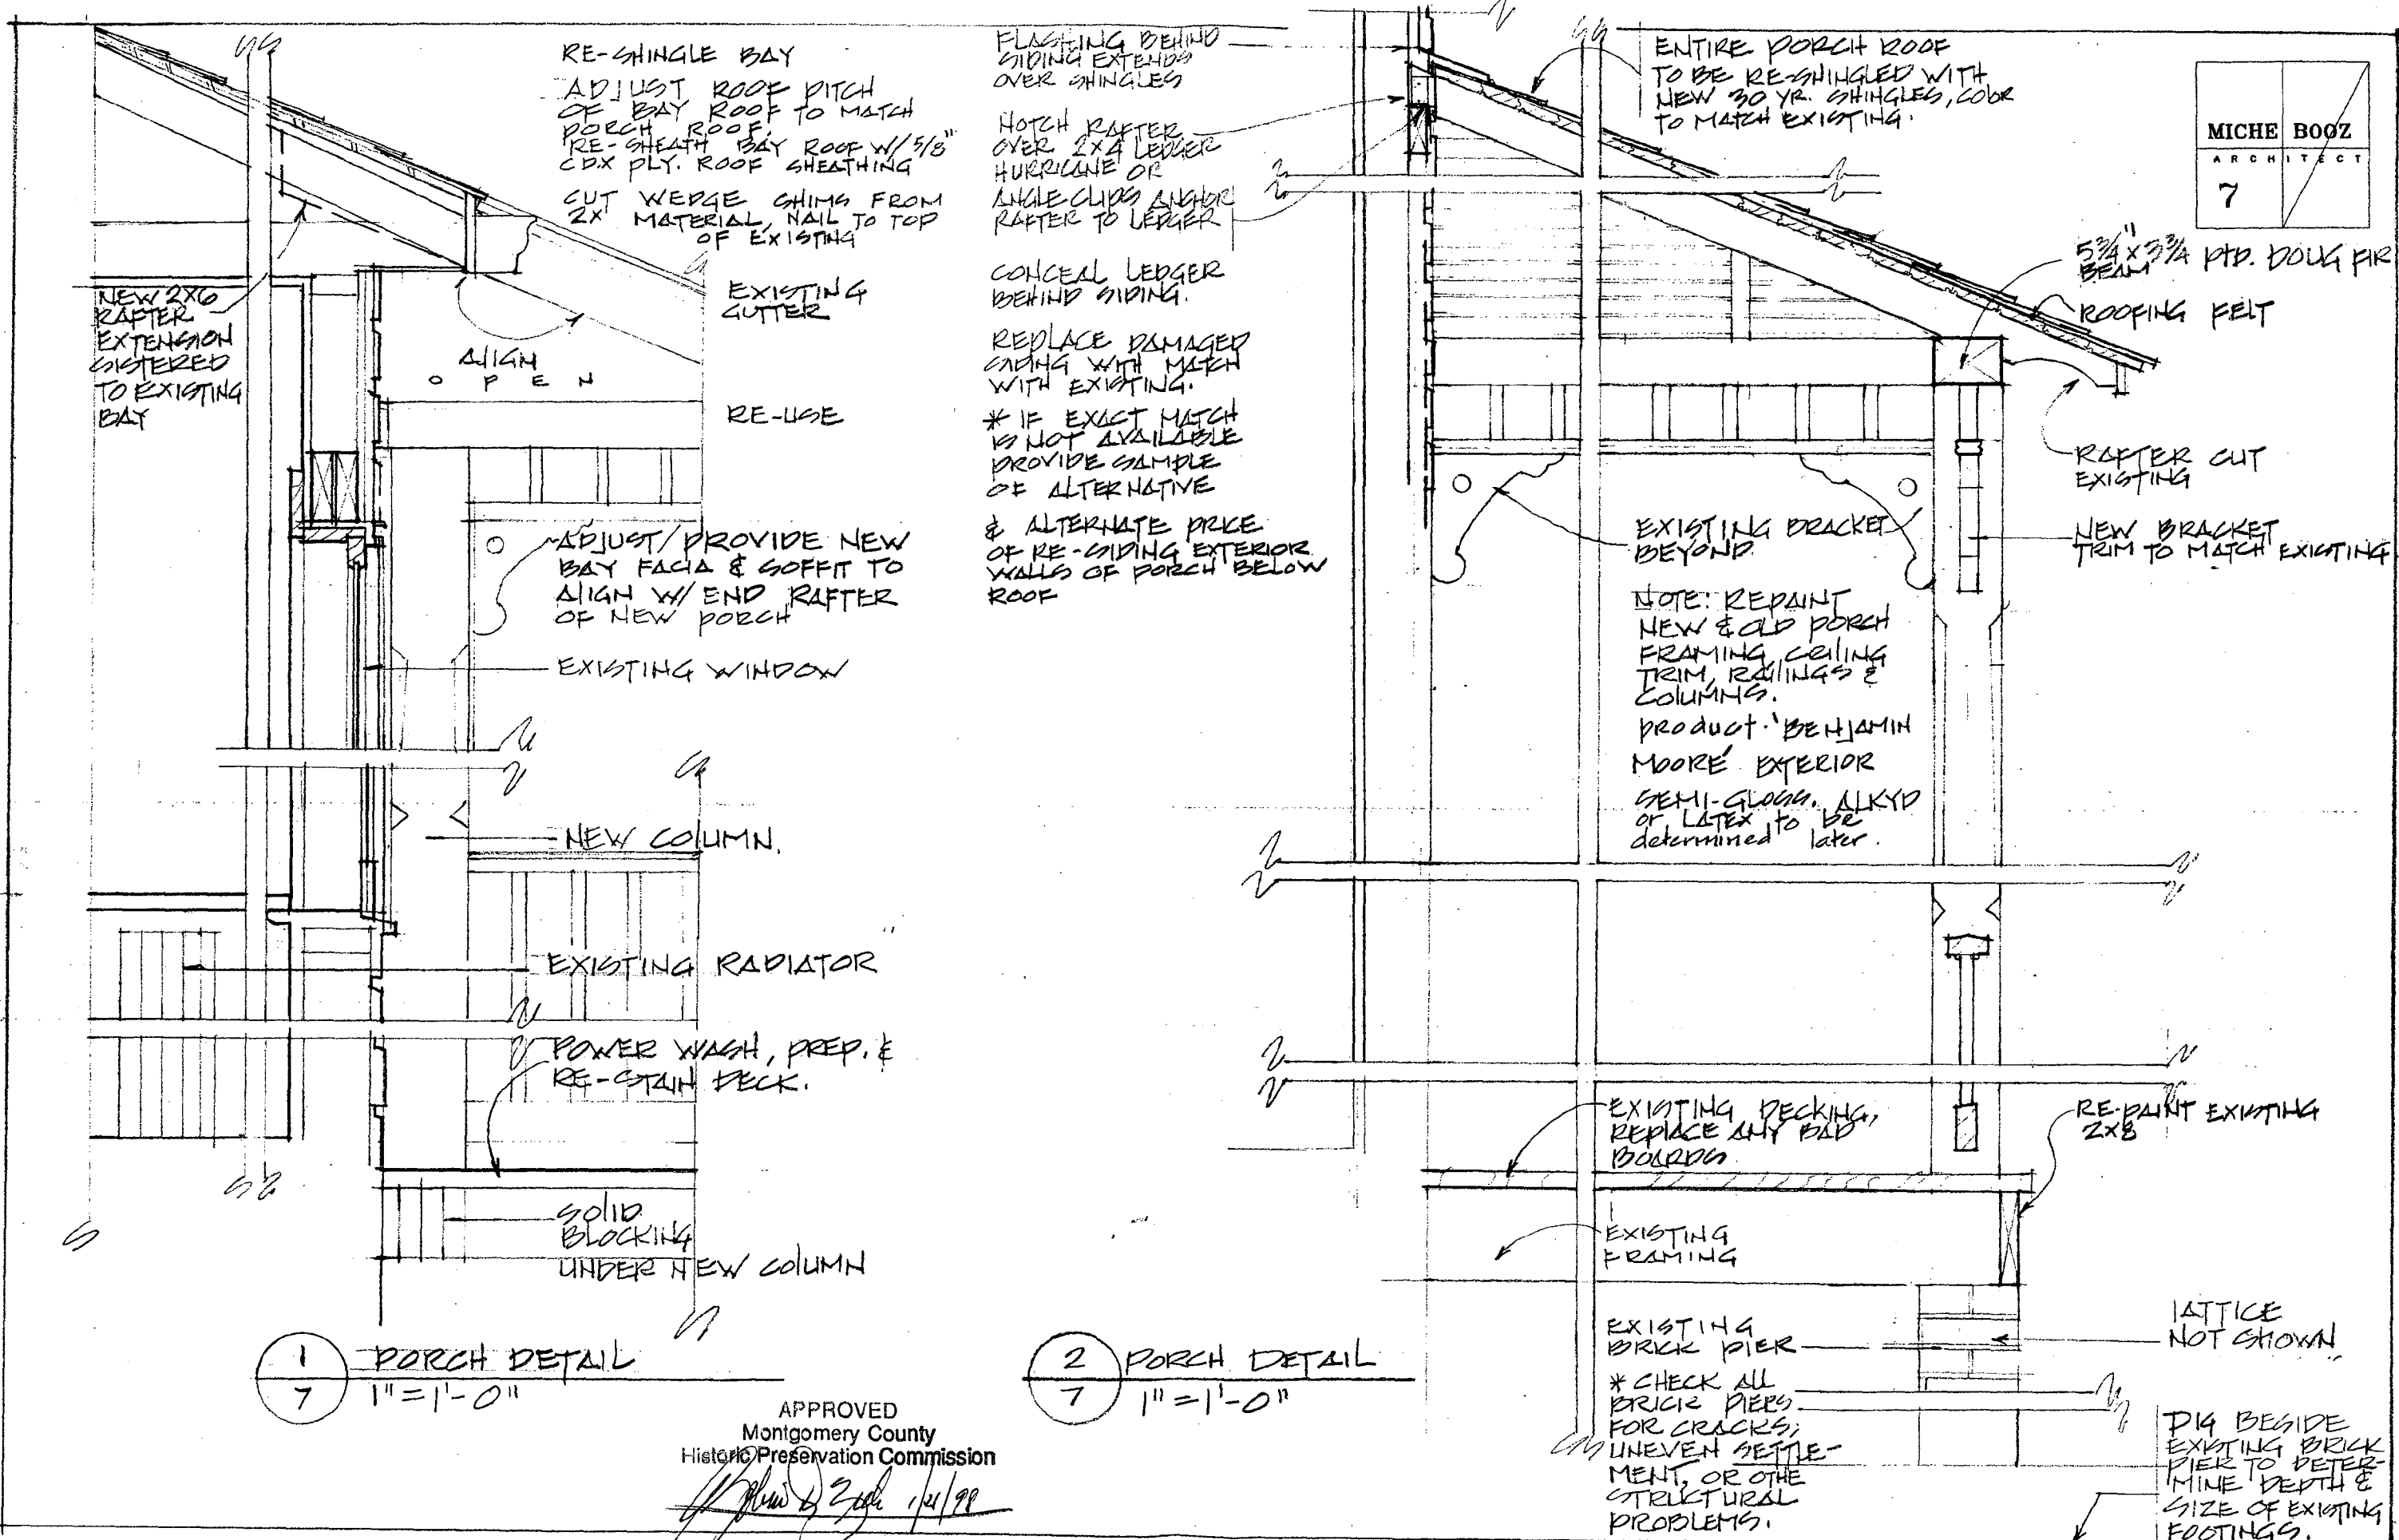 RE-SHINGLE BAY
ADJUST ROOF PITCH
OF BAY ROOF TO MATCH
PORCH ROOF.
RE-SHEATH BAY ROOF W/ 5/8"
CDX PLY. ROOF SHEATHING
CUT WEDGE SHIMS FROM
2X MATERIAL, NAIL TO TOP
OF EXISTING
NEW 2X6
RAFTER
EXTENSION
SISTERED
TO EXISTING
BAY
EXISTING
GUTTER
ALIGN
OPEN
RE-USE
ADJUST/PROVIDE NEW
BAY FACIA & SOFFIT TO
ALIGN W/ END RAFTER
OF NEW PORCH
EXISTING WINDOW
NEW COLUMN.
EXISTING RADIATOR
POWER WASH, PREP. &
RE-STAIN DECK.
SOLID
BLOCKING
UNDER NEW COLUMN
1
7
PORCH DETAIL
1"=1'-0"
APPROVED
Montgomery County
Historic Preservation Commission
FLASHING BEHIND
SIDING EXTENDS
OVER SHINGLES
NOTCH RAFTER
OVER 2X4 LEDGER
HURRICANE OR
ANGLE CLIPS ANCHOR
RAFTER TO LEDGER
CONCEAL LEDGER
BEHIND SIDING.
REPLACE DAMAGED
SIDING WITH MATCH
WITH EXISTING.
* IF EXACT MATCH
IS NOT AVAILABLE
PROVIDE SAMPLE
OF ALTERNATIVE
& ALTERNATE PRICE
OF RE-SIDING EXTERIOR
WALLS OF PORCH BELOW
ROOF
ENTIRE PORCH ROOF
TO BE RE-SHINGLED WITH
NEW 30 YR. SHINGLES, COLOR
TO MATCH EXISTING.
MICHE BOOZ
ARCHITECT
7
5 3/4" X 3 3/4 PTD. DOUG FIR
BEAM
ROOFING FELT
RAFTER CUT
EXISTING
NEW BRACKET
TRIM TO MATCH EXISTING
EXISTING BRACKET
BEYOND
NOTE: REPAINT
NEW & OLD PORCH
FRAMING, CEILING
TRIM, RAILINGS &
COLUMNS.
PRODUCT. 'BENJAMIN
MOORE' EXTERIOR
SEMI-GLOSS. ALKYD
or LATEX to be
determined later.
EXISTING DECKING,
REPLACE ANY BAD
BOARDS
RE-PAINT EXISTING
2X8
EXISTING
FRAMING
EXISTING
BRICK PIER
LATTICE
NOT SHOWN
* CHECK ALL
BRICK PIERS
FOR CRACKS,
UNEVEN SETTLE-
MENT, OR OTHE
STRUCTURAL
PROBLEMS.
DIG BESIDE
EXISTING BRICK
PIER TO DETER-
MINE DEPTH &
SIZE OF EXISTING
FOOTINGS.
2
7
PORCH DETAIL
1"=1'-0"